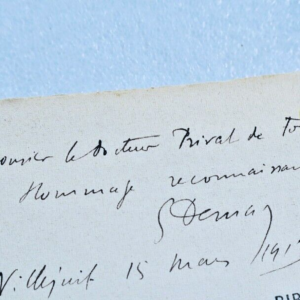 onsieur le docteur Privat de Fo
Hommage reconnaissan
GDemay
Villejuif 15 mars 191
DIR